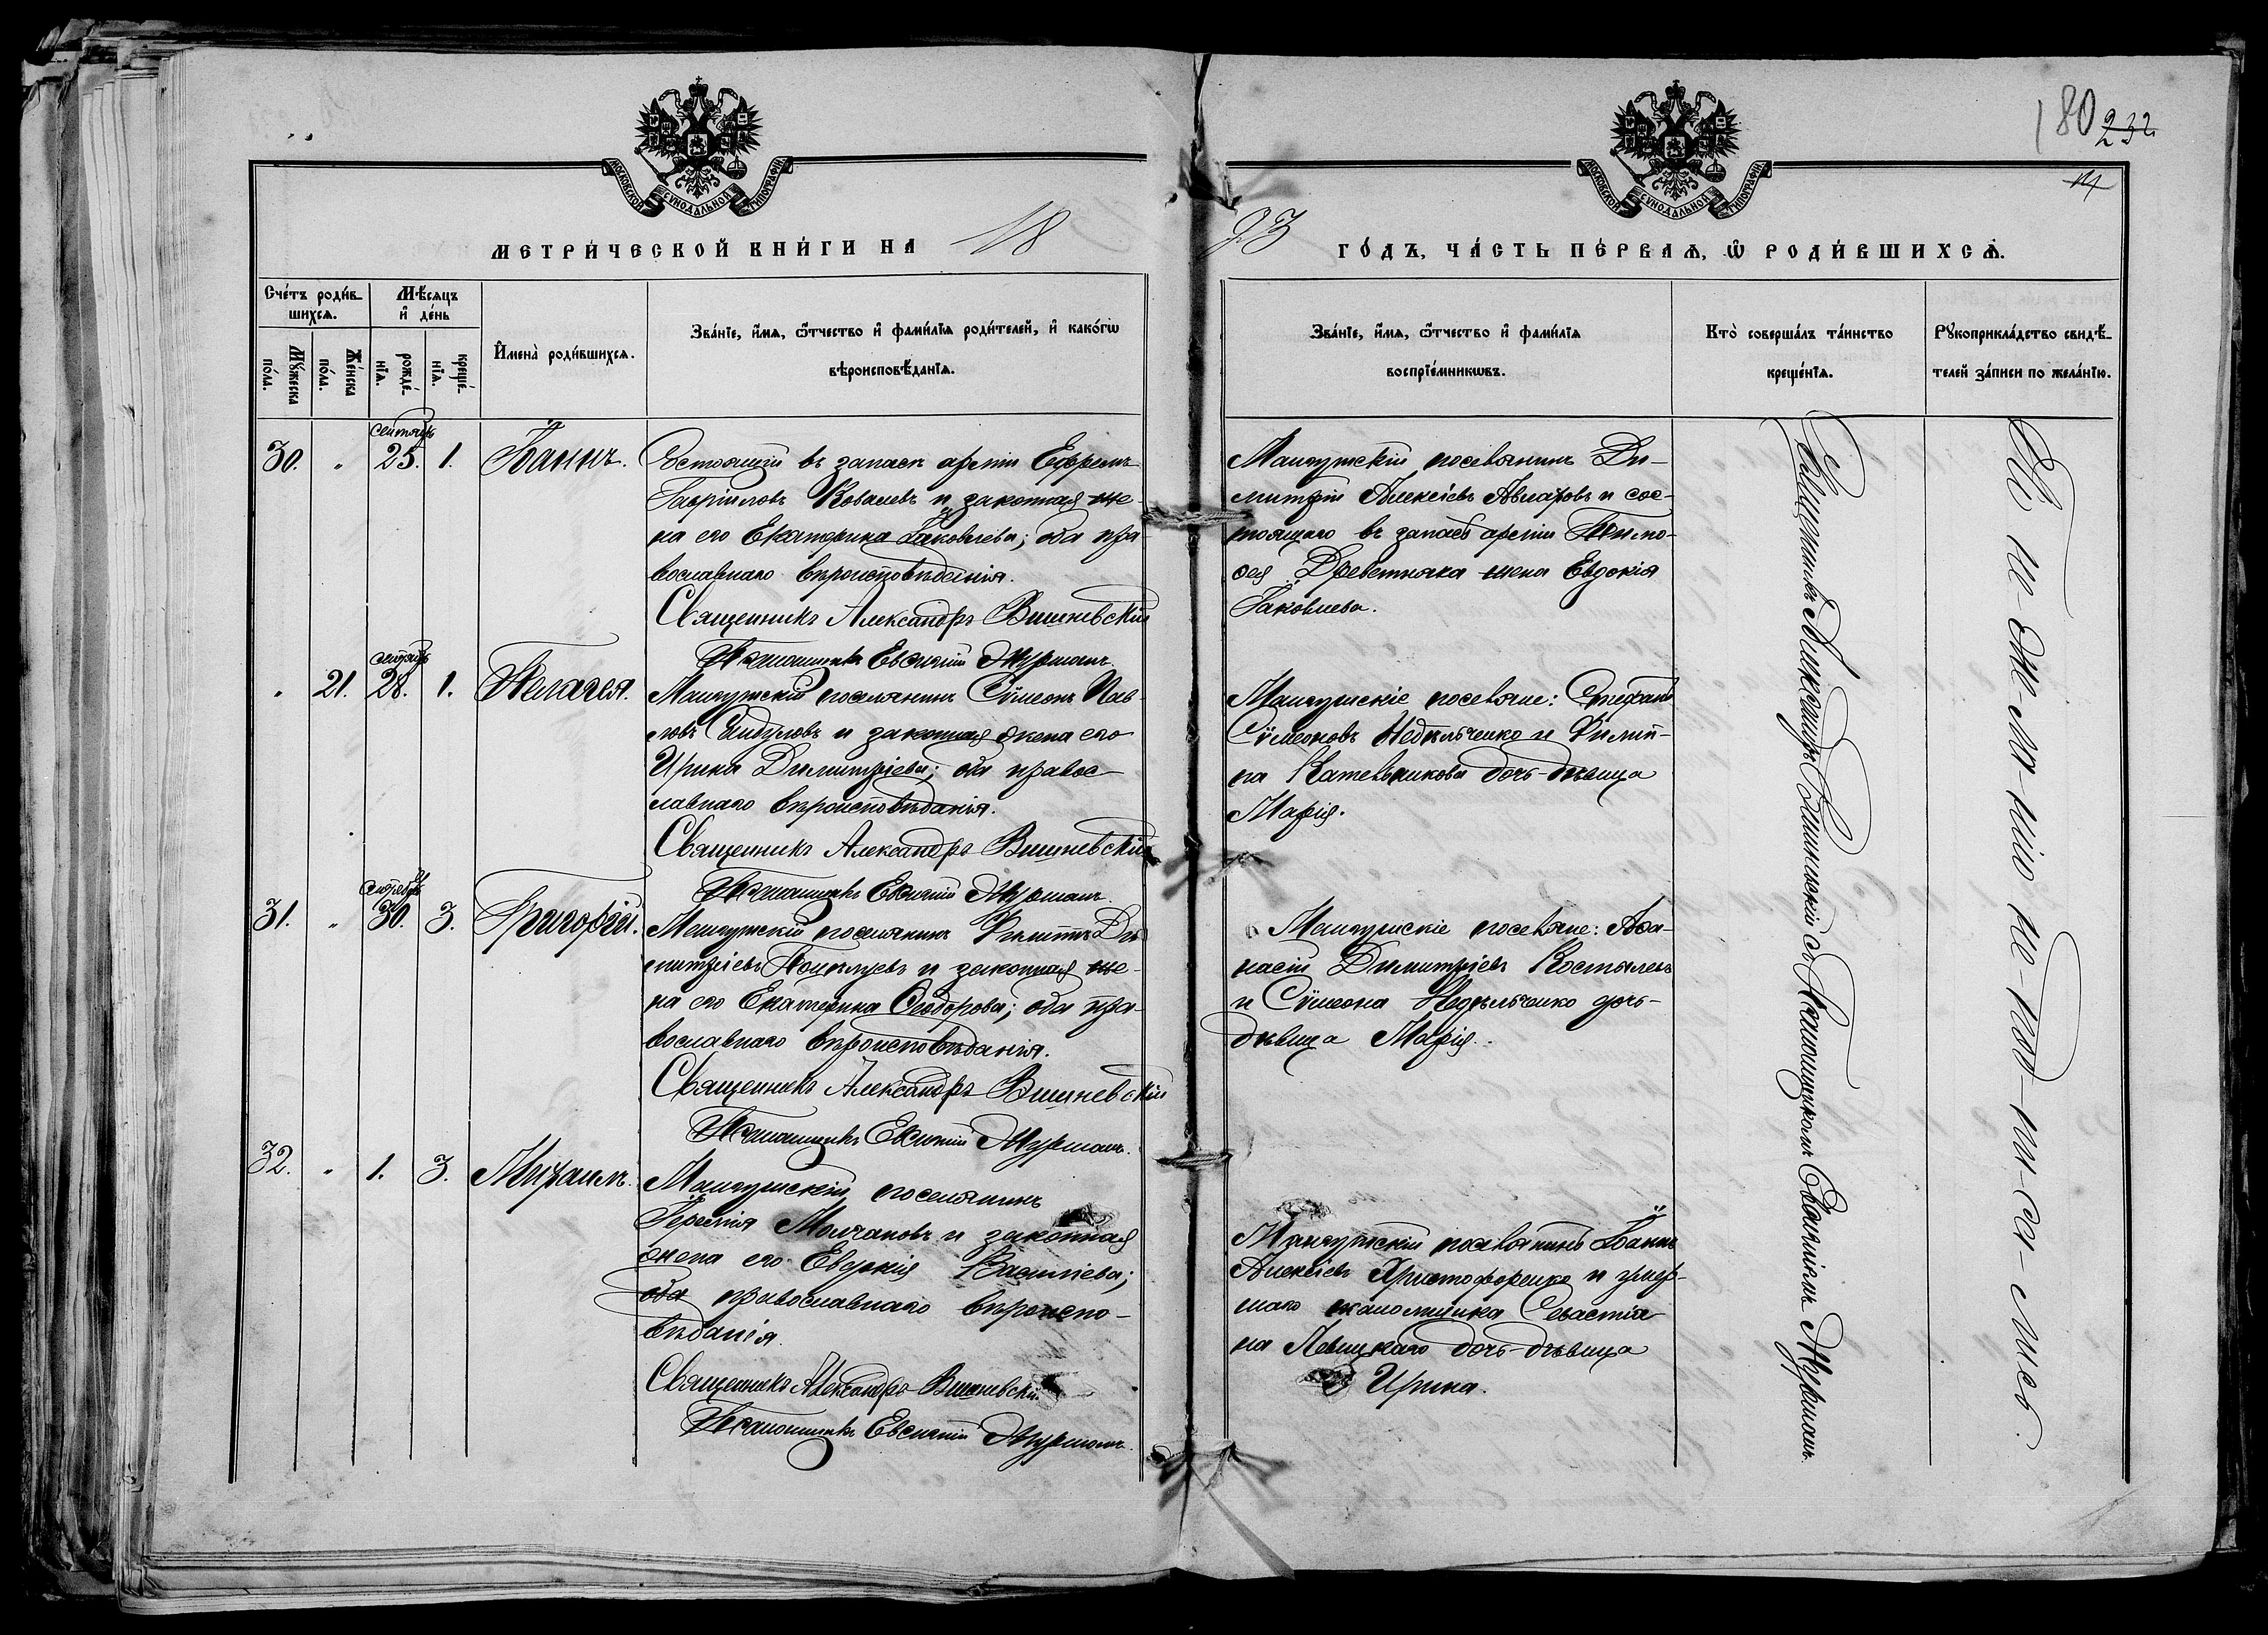 180 232
14
МОСКОВСКОЙ СУНОДАЛЬНОЙ ТИПОГРАФІИ
МОСКОВСКОЙ СУНОДАЛЬНОЙ ТИПОГРАФІИ
МЕТРИ́ЧЕСКОЙ КНИ́ГИ НА 18
93 ГО́ДЪ, ЧА́СТЬ ПЕ́РВАѦ, Ѿ РОДИ́ВШИХСѦ.
Сче́тъ роди́вшихсѧ.
Мꙋ́жеска по́ла.
Же́нска по́ла.
Мѣ́сѧцъ и҆ де́нь
рожде́нїѧ.
креще́нїѧ.
И҆мена̀ роди́вшихсѧ.
Зва́нїе, и҆́мѧ, ѻ҆́тчество и҆ фами́лїѧ роди́телей, и҆ како́гѡ
вѣроисповѣ́данїѧ.
Зва́нїе, и҆́мѧ, ѻ҆́тчество и҆ фами́лїѧ
воспрїе́мникѡвъ.
Кто̀ соверша́лъ та́инство
креще́нїѧ.
Рꙋкоприкла́дство свидѣ́-
телей за́писи по жела́нїю.
30. " сентябрь 25. 1. Іоаннъ.
Состоящій въ запасѣ арміи Ефремъ
Гавріиловъ Ковалевъ и законная же-
на его Екатерина Іаковлева; оба пра-
вославнаго вѣроисповѣданія.
Священникъ Александръ Вишневскій
Псаломщикъ Евсигній Журманъ.
Мангушскій поселянинъ Ди-
митрій Алексіевъ Авларовъ и сос-
тоящаго въ запасѣ арміи Тимо-
ѳея Древетняка жена Евдокія
Іаковлева.
" 21. сентябрь 28. 1. Пелагея.
Мангушскій поселянинъ Сѵмеонъ Пав-
ловъ и законная жена его
Ирина Димитріева; оба правос-
лавнаго вѣроисповѣданія.
Священникъ Александръ Вишневскій
Псаломщикъ Евсигній Журманъ.
Мангушскіе поселяне: Стефанъ
Сѵмеоновъ Недѣльченко и Филип-
па Котельникова дочь-дѣвица
Марія.
31. " сентябрь 30. 3. Григорій.
Мангушскій поселянинъ Филиппъ Ди-
митріевъ Поцелуевъ и законная же-
на его Екатерина Ѳеодорова; оба пра-
вославнаго вѣроисповѣданія.
Священникъ Александръ Вишневскій
Псаломщикъ Евсигній Журманъ.
Мангушскіе поселяне: Аѳа-
насій Димитріевъ Костылевъ
и Сѵмеона Недѣльченко дочь-
дѣвица Марія.
32. " 1. 3. Михаилъ.
Мангушскій поселянинъ
Іеремія Молчановъ и законная
жена его Евдокія Василіева;
оба православнаго вѣроиспо-
вѣданія.
Священникъ Александръ Вишневскій
Псаломщикъ Евсигній Журманъ.
Мангушскій поселянинъ Іоаннъ
Алексіевъ Христофоренко и умер-
шаго псаломщика Севастія-
на Левицкаго дочь-дѣвица
Ирина.
Священникъ Александръ Вишневскій съ Псаломщикомъ Евсигніемъ Журманъ.